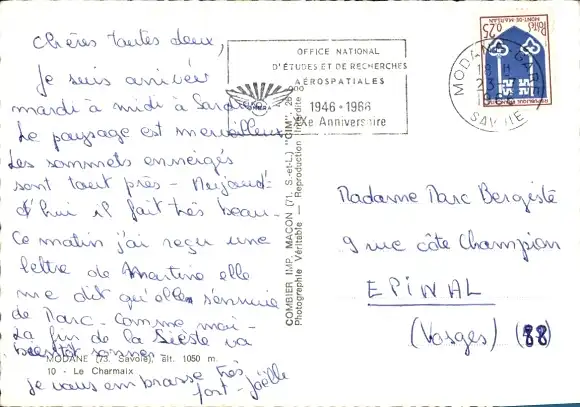 Chères toutes deux,
Je suis arrivée
mardi à midi à
Le paysage est merveilleux
Les sommets enneigés
sont tout près - Aujourd'-
d'hui il fait très beau -
Ce matin j'ai reçu une
lettre de Martine elle
me dit qu'elle s'ennuie
de Marc - comme moi -
La fin de la Sieste va
bientôt sonner
je vous embrasse très
fort - Joëlle
MODANE (73. Savoie), alt. 1050 m.
10 - Le Charmaix
COMBIER IMP. MACON (71. S.-et-L.) "CIM"
Photographie Véritable — Reproduction Interdite
OFFICE NATIONAL
D'ÉTUDES ET DE RECHERCHES
AÉROSPATIALES
1946 - 1966
XXe Anniversaire
ONERA
MODANE GARE
18 H
23
SAVOIE
0,25
MONT-DE-MARSAN
Madame Marc Bergiste
9 rue côte Champion
EPINAL
(Vosges) (88)